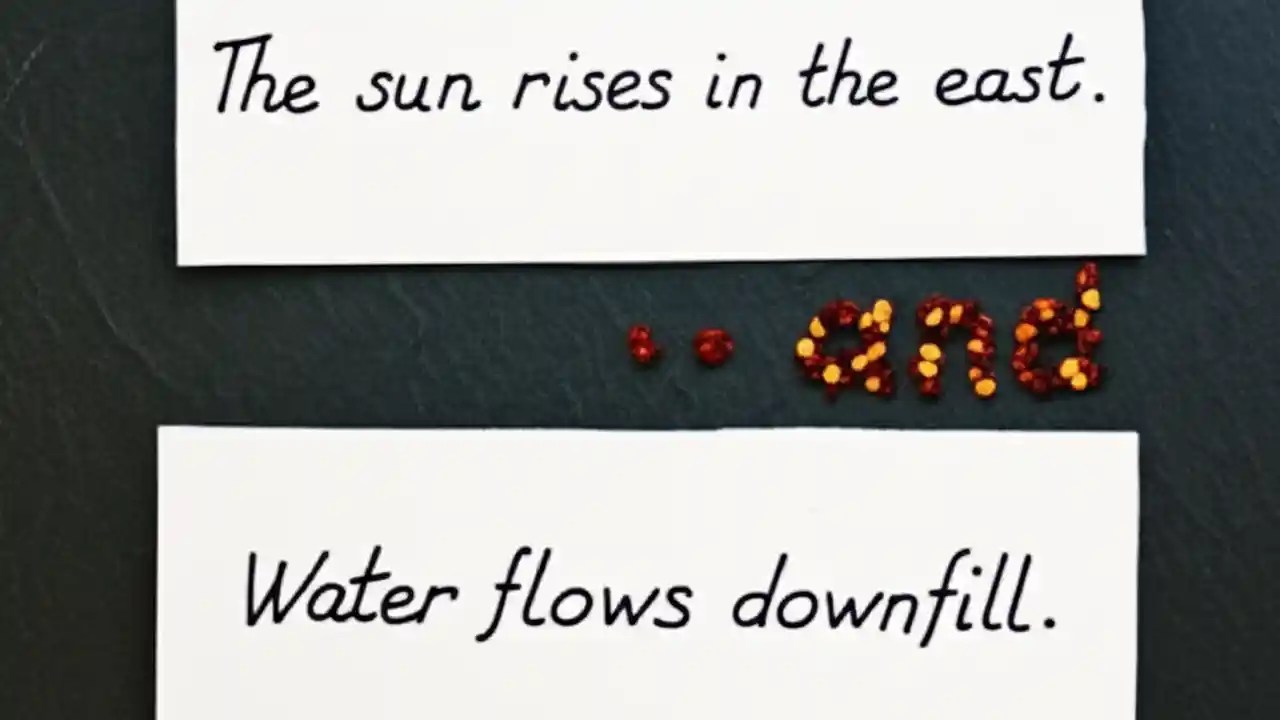 The sun rises in the east.
.. and
Water flows downfill.